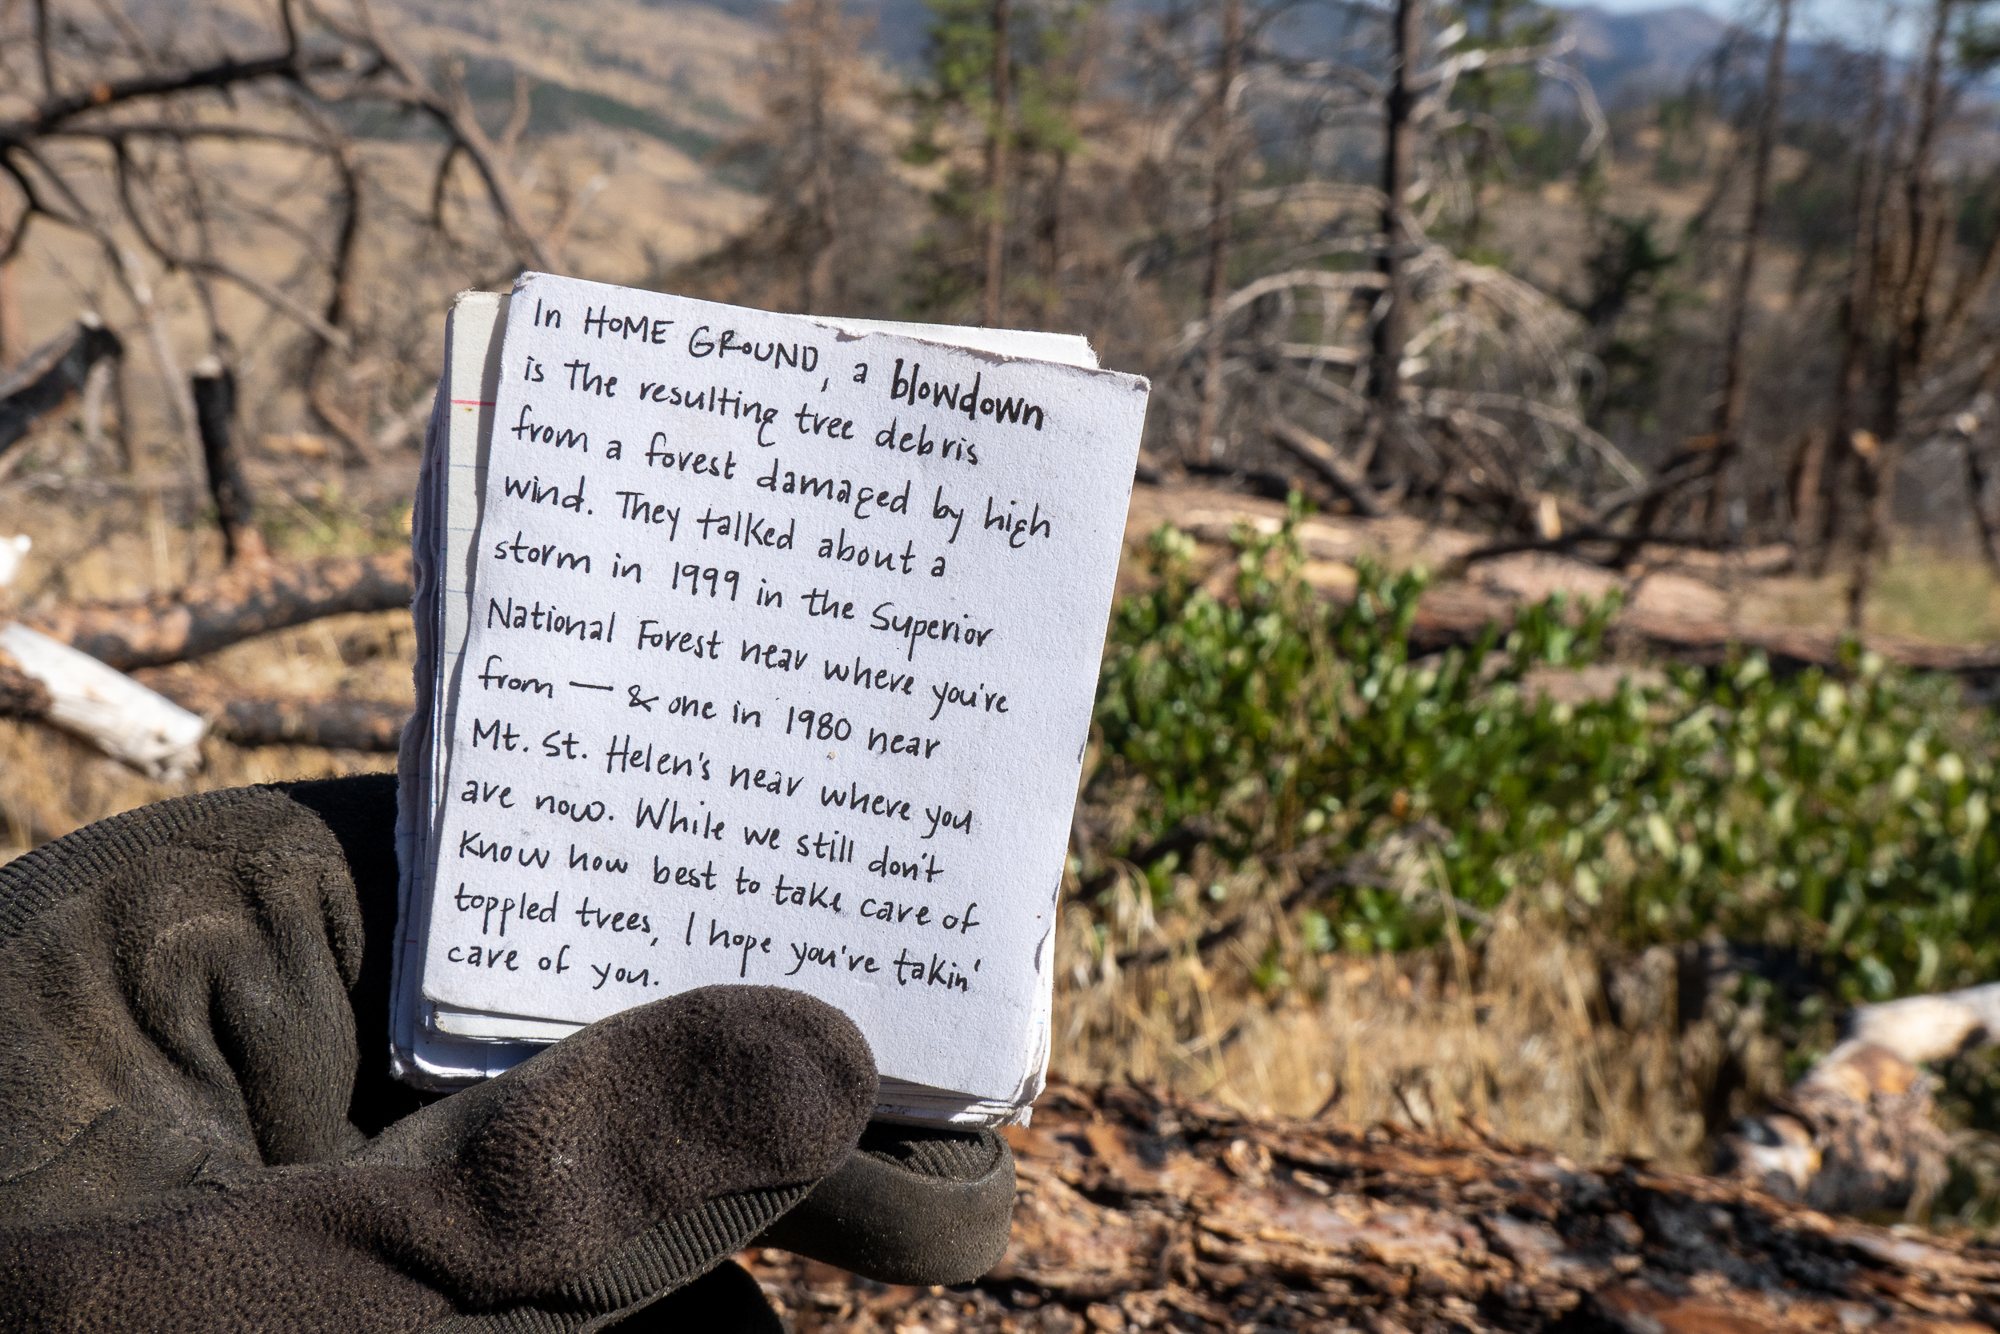 In HOME GROUND, a blowdown
is the resulting tree debris
from a forest damaged by high
wind. They talked about a
storm in 1999 in the Superior
National Forest near where you're
from — & one in 1980 near
Mt. St. Helen's near where you
are now. While we still don't
know how best to take care of
toppled trees, I hope you're takin'
care of you.